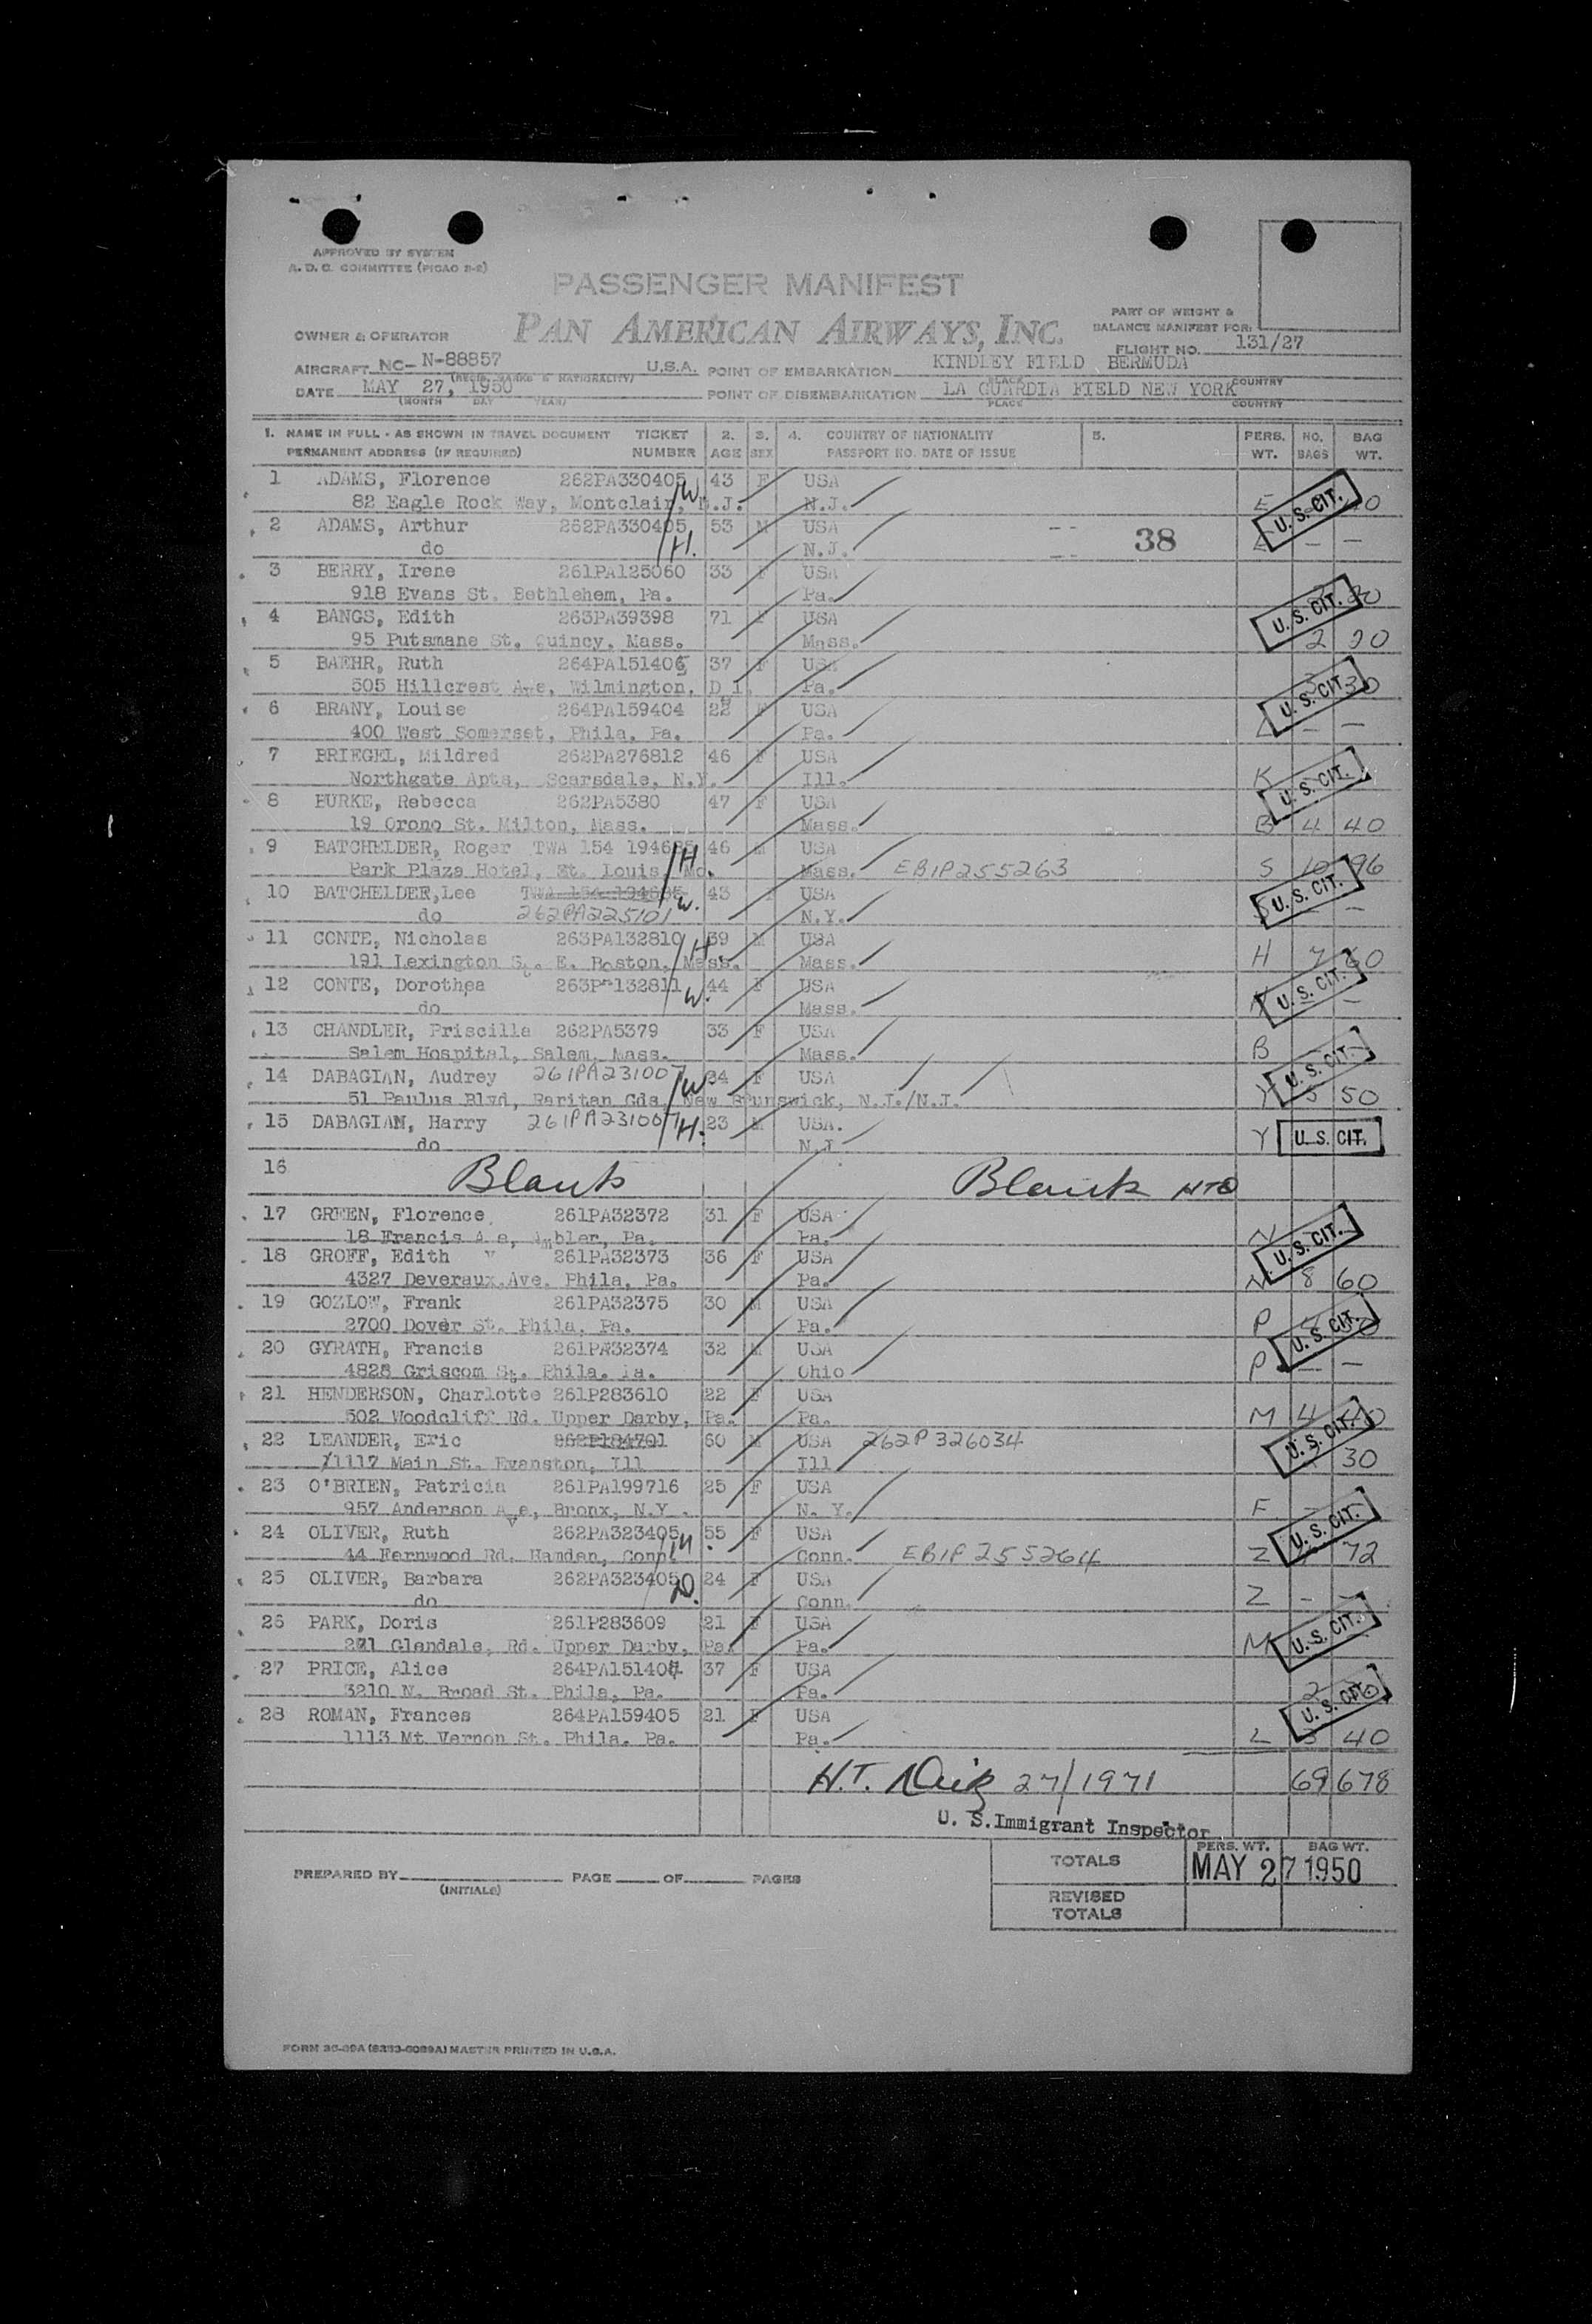 APPROVED BY SYSTEM
A. D. C. COMMITTEE (PICAO 2-2)
PASSENGER MANIFEST
PART OF WEIGHT &
BALANCE MANIFEST FOR:
OWNER & OPERATOR PAN AMERICAN AIRWAYS, INC.
FLIGHT NO. 131/27
AIRCRAFT NC- N-88857 U.S.A. POINT OF EMBARKATION KINDLEY FIELD BERMUDA
(REGIS. MARKS & NATIONALITY) PLACE COUNTRY
DATE MAY 27, 1950 POINT OF DISEMBARKATION LA GUARDIA FIELD NEW YORK
(MONTH DAY YEAR) PLACE COUNTRY
1. NAME IN FULL - AS SHOWN IN TRAVEL DOCUMENT TICKET 2. 3. 4. COUNTRY OF NATIONALITY 5. PERS. NO. BAG
PERMANENT ADDRESS (IF REQUIRED) NUMBER AGE SEX PASSPORT NO. DATE OF ISSUE WT. BAGS WT.
1 ADAMS, Florence 262PA330405 43 F USA
82 Eagle Rock Way, Montclair, N.J. W. N.J. E U. S. CIT.
2 ADAMS, Arthur 262PA330405 53 M USA 38
do H. N.J. — —
3 BERRY, Irene 261PA125060 33 F USA
918 Evans St. Bethlehem, Pa. Pa.
4 BANGS, Edith 263PA39398 71 F USA U. S. CIT.
95 Putsmane St. Quincy, Mass. Mass. 2 20
5 BAEHR, Ruth 264PA151406 37 F USA
505 Hillcrest Ave, Wilmington, Pa. U. S. CIT. 30
6 BRANY, Louise 264PA159404 22 F USA
400 West Somerset, Phila, Pa. Pa. — —
7 BRIEGEL, Mildred 262PA276812 46 F USA
Northgate Apts, Scarsdale, N.Y. Ill. K U. S. CIT.
8 BURKE, Rebecca 262PA5380 47 F USA
19 Orono St. Milton, Mass. Mass. B 4 40
9 BATCHELDER, Roger TWA 154 194685 46 M USA
Park Plaza Hotel, St. Louis, Mo. H Mass. EB1P255263 S 10 96
10 BATCHELDER,Lee TWA 154 194685 43 F USA U. S. CIT.
do 262PA225101 W. N.Y. S — —
11 CONTE, Nicholas 263PA132810 39 M USA
191 Lexington S. E. Boston, Mass. H Mass. H 7 60
12 CONTE, Dorothea 263P 132811 44 F USA U. S. CIT.
do W. Mass. —
13 CHANDLER, Priscilla 262PA5379 33 F USA
Salem Hospital, Salem, Mass. Mass. B
14 DABAGIAN, Audrey 261PA231007 24 F USA U. S. CIT.
51 Paulus Blvd, Raritan Gds. New Brunswick, N.J./N.J. W Y 5 50
15 DABAGIAN, Harry 261PA231007 23 M USA.
do H. N.J Y U. S. CIT.
16 Blank Blank HTD
17 GREEN, Florence 261PA32372 31 F USA
18 Francis Ave, Ambler, Pa. Pa. N U. S. CIT.
18 GROFF, Edith 261PA32373 36 F USA
4327 Deveraux.Ave. Phila, Pa. Pa. N 8 60
19 GOZLOW, Frank 261PA32375 30 M USA
2700 Dover St. Phila, Pa. Pa. P U. S. CIT.
20 GYRATH, Francis 261PA32374 32 M USA
4828 Griscom St. Phila. Pa. Ohio P — —
21 HENDERSON, Charlotte 261P283610 22 F USA
502 Woodcliff Rd. Upper Darby, Pa. Pa. M 4
22 LEANDER, Eric 262P184701 60 M USA 262P326034 U. S. CIT.
1117 Main St. Evanston, Ill Ill 30
23 O'BRIEN, Patricia 261PA199716 25 F USA
957 Anderson Ave, Bronx, N.Y. N. Y. F
24 OLIVER, Ruth 262PA323405 55 F USA U. S. CIT.
44 Fernwood Rd. Hamden, Conn M Conn. EB1P255264 Z 72
25 OLIVER, Barbara 262PA323405 24 F USA
do D. Conn. Z - -
26 PARK, Doris 261P283609 21 F USA
271 Glendale, Rd. Upper Darby, Pa. Pa. M U. S. CIT.
27 PRICE, Alice 264PA151407 37 F USA
3210 N. Broad St. Phila, Pa. Pa. 2
28 ROMAN, Frances 264PA159405 21 F USA U. S. CIT.
1113 Mt Vernon St. Phila. Pa. Pa. L 3 40
H.T. 27/1971 69 678
U. S.Immigrant Inspector
PERS. WT. BAG WT.
TOTALS MAY 27 1950
PREPARED BY PAGE OF PAGES
(INITIALS)
REVISED
TOTALS
FORM 36-39A (8283-6089A) MASTER PRINTED IN U.S.A.